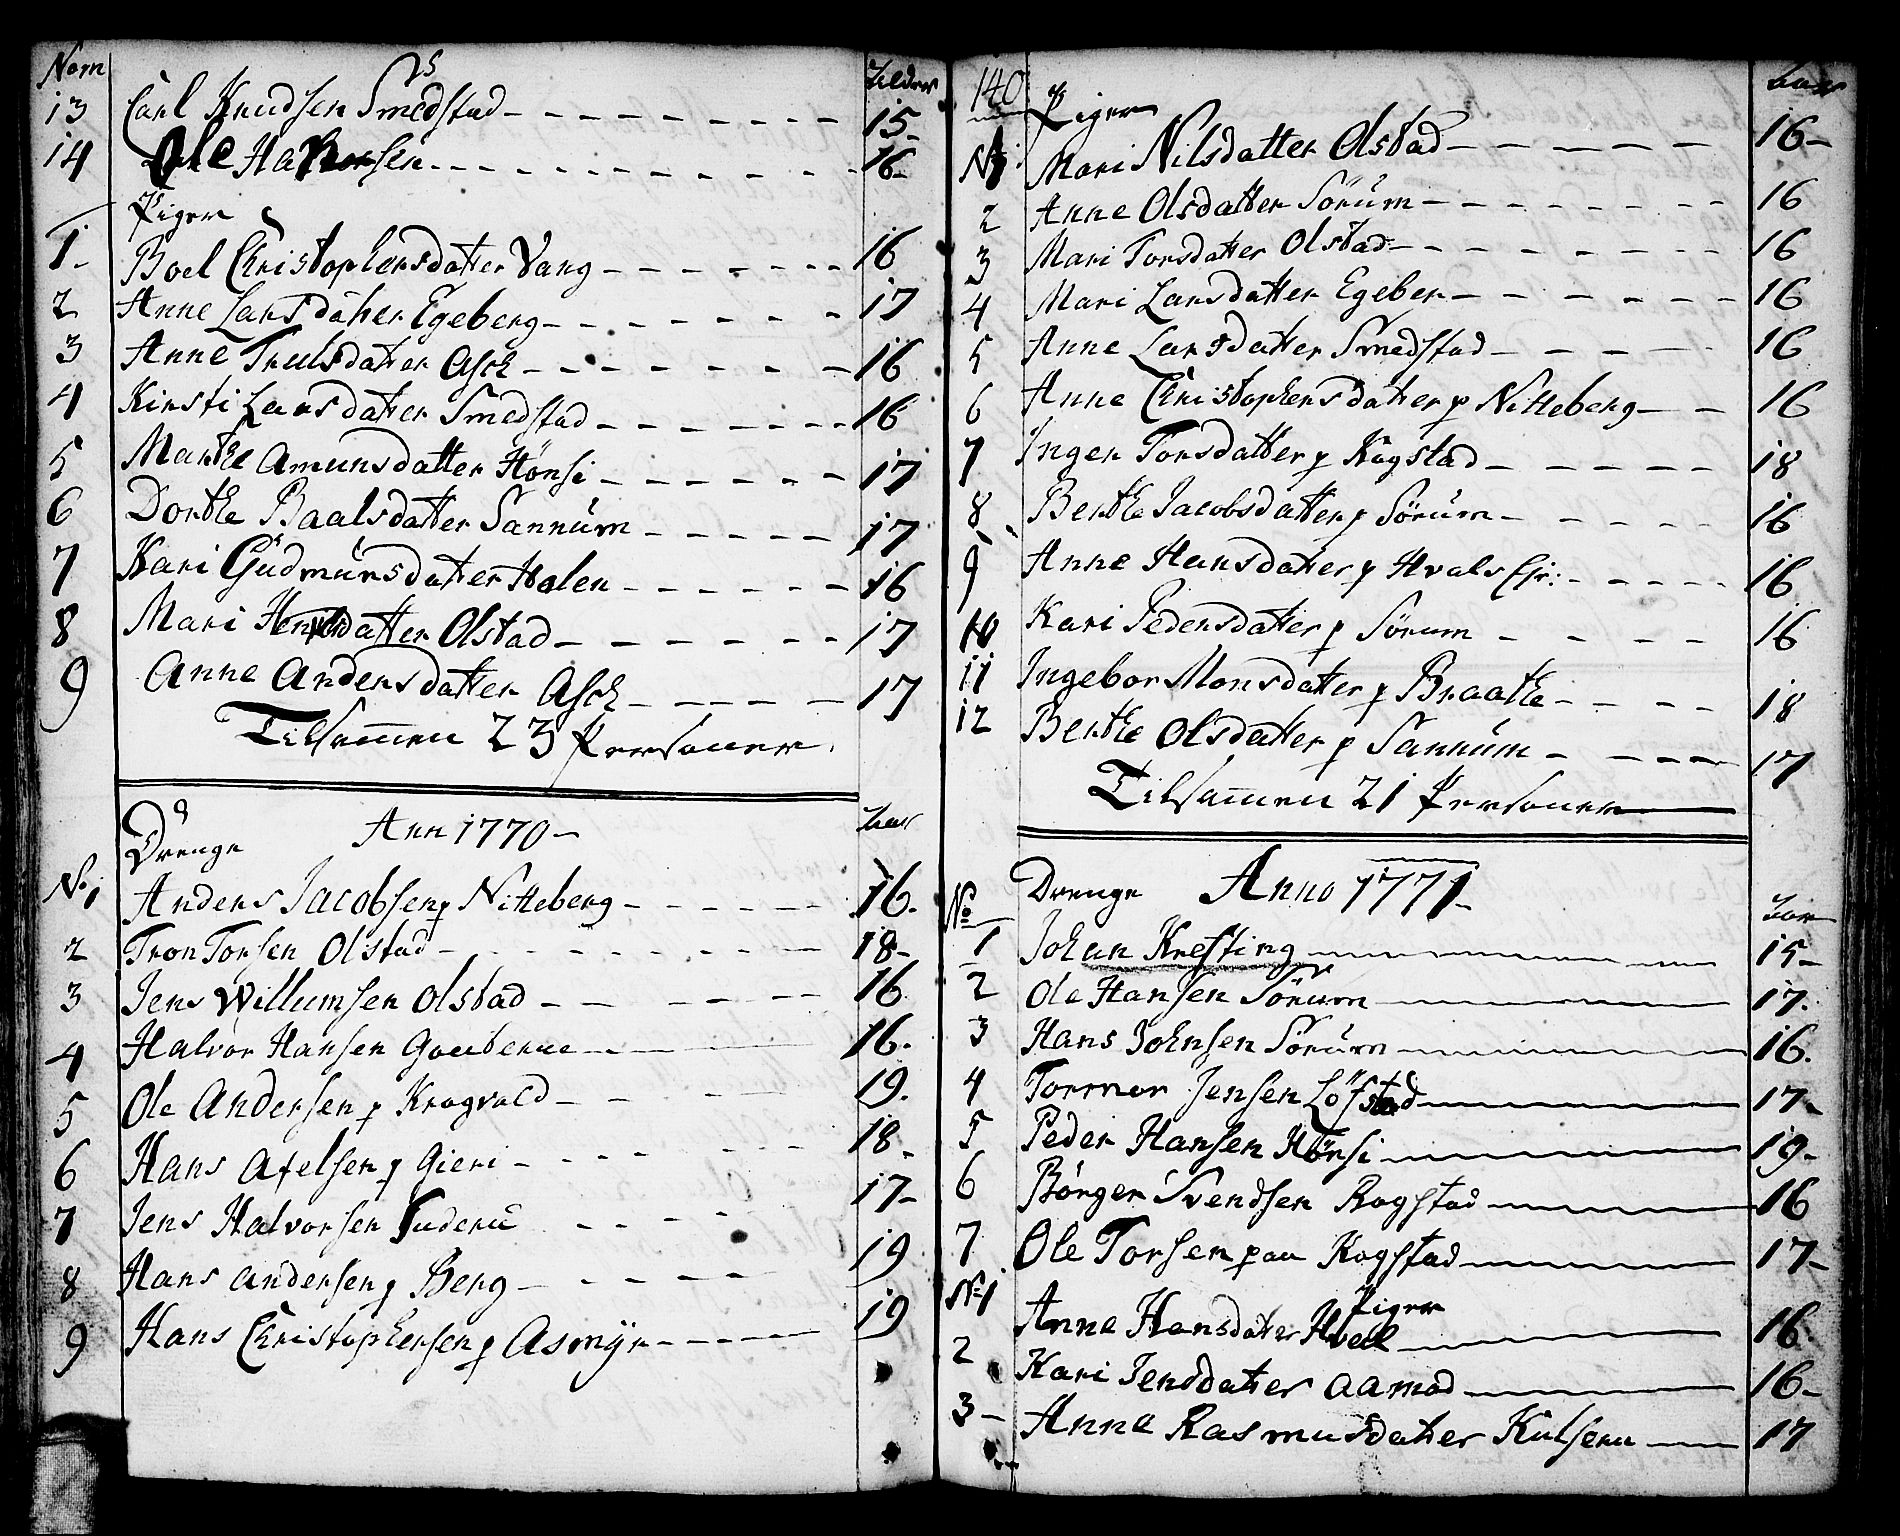 Nom Alder
13 Carl Knudsen Smedstad 15
14 Ole Halvorsen 16
Piger
1. Boel Christophersdatter Vang 16
2 Anne Larsdatter Egeberg 17
3 Anne Trulsdatter Asch 16
4 Kirsti Larsdatter Smedstad 16
5 Marthe Amunsdatter Hönsi 17
6 Dorthe Baalsdatter Sannúm 17
7 Kari Gúdmúnsdatter Holen 16
8 Mari datter Olstad 17
9 Anne Andersdatter Asch 17
Tilsammen 23 Personer.
Drenge Ann 1770 Aar
No 1 Anders Jacobsen p Nitteberg 16.
2 Tron Torsen Olstad 18
3 Jens Willumsen Olstad 16
4 Halvor Hansen 16.
5 Ole Andersen p Krogvold 19.
6 Hans Axelsen p Gieri 18
7 Jens Halvorsen 17
8 Hans Andersen p Berg 19
9 Hans Christophersen p Asmÿr 19
140
Piger Aar
No 1 Mari Nilsdatter Olstad 16
2 Anne Olsdatter Sörúm 16
3 Mari Torsdatter Olstad 16
4 Mari Larsdatter Egeber 16
5 Anne Larsdatter Smedstad 16
6 Anne Christophersdatter p Nitteberg 16
7 Inger Torsdatter p Kogstad 18
8 Berthe Jacobsdatter p Sörúm 16
9 Anne Hansdatter p Hvals Ejr: 16
10 Kari Pedersdatter p Sörum 16
11 Ingebor Monsdatter p Braathe 18
12 Berthe Olsdatter p Sannúm 17
Tilsammen 21 Personer
Drenge Anno 1771
No Aar
1 Johan Krefting 15
2 Ole Hansen Sörum 17.
3 Hans Johnsen Sörúm 16.
4 Tormor Jensen Löfstad 17
5 Peder Hansen Hönsi 19
6 Börger Svendsen Rogstad 16
7 Ole Torsen paa Kogstad 17
Piger
No 1 Anne Hansdatter Hval 16
2 Kari Jensdatter Aamod 16
3 Anne Rasmusdatter Kulseru 17